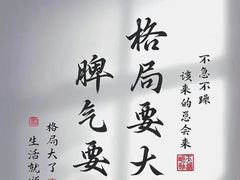 不急不躁
该来的总会来
格局要大
脾气要
格局大了
生活就